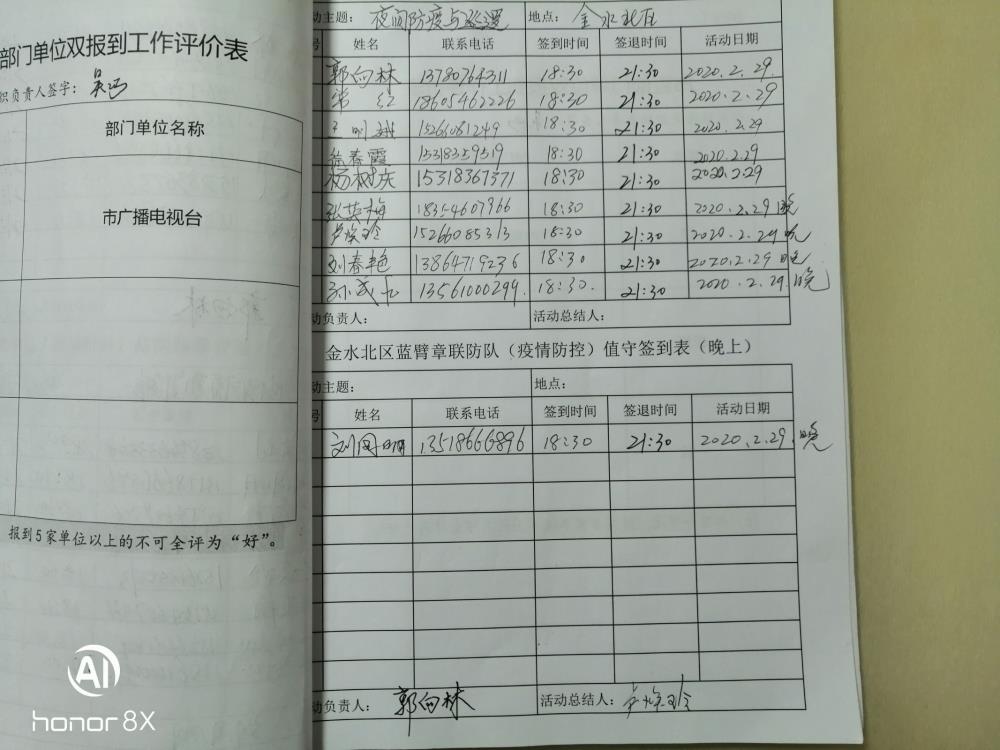 部门单位双报到工作评价表
职负责人签字：
部门单位名称
市广播电视台
报到5家单位以上的不可全评为“好”。
动主题： 夜间防疫与巡逻 地点： 金水北区
号 姓名 联系电话 签到时间 签退时间 活动日期
郭向林 13780764311 18:30 21:30 2020.2.29.
18605462226 18:30 21:30 2020.2.29
15266081249 18:30 21:30 2020.2.29
徐春霞 15318359519 18:30 21:30 2020.2.29
杨树庆 15318367371 18:30 21:30 2020.2.29
张英梅 18354607966 18:30 21:30 2020.2.29 晚
15266085313 18:30 21:30 2020.2.29 晚
刘春艳 13864719236 18:30 21:30 2020.2.29 晚
13561000299. 18:30. 21:30 2020.2.29. 晚
动负责人： 活动总结人：
金水北区蓝臂章联防队（疫情防控）值守签到表（晚上）
动主题： 地点：
号 姓名 联系电话 签到时间 签退时间 活动日期
刘国明 13518666896 18:30 21:30 2020.2.29. 晚
动负责人： 郭向林 活动总结人：
AI
honor 8X